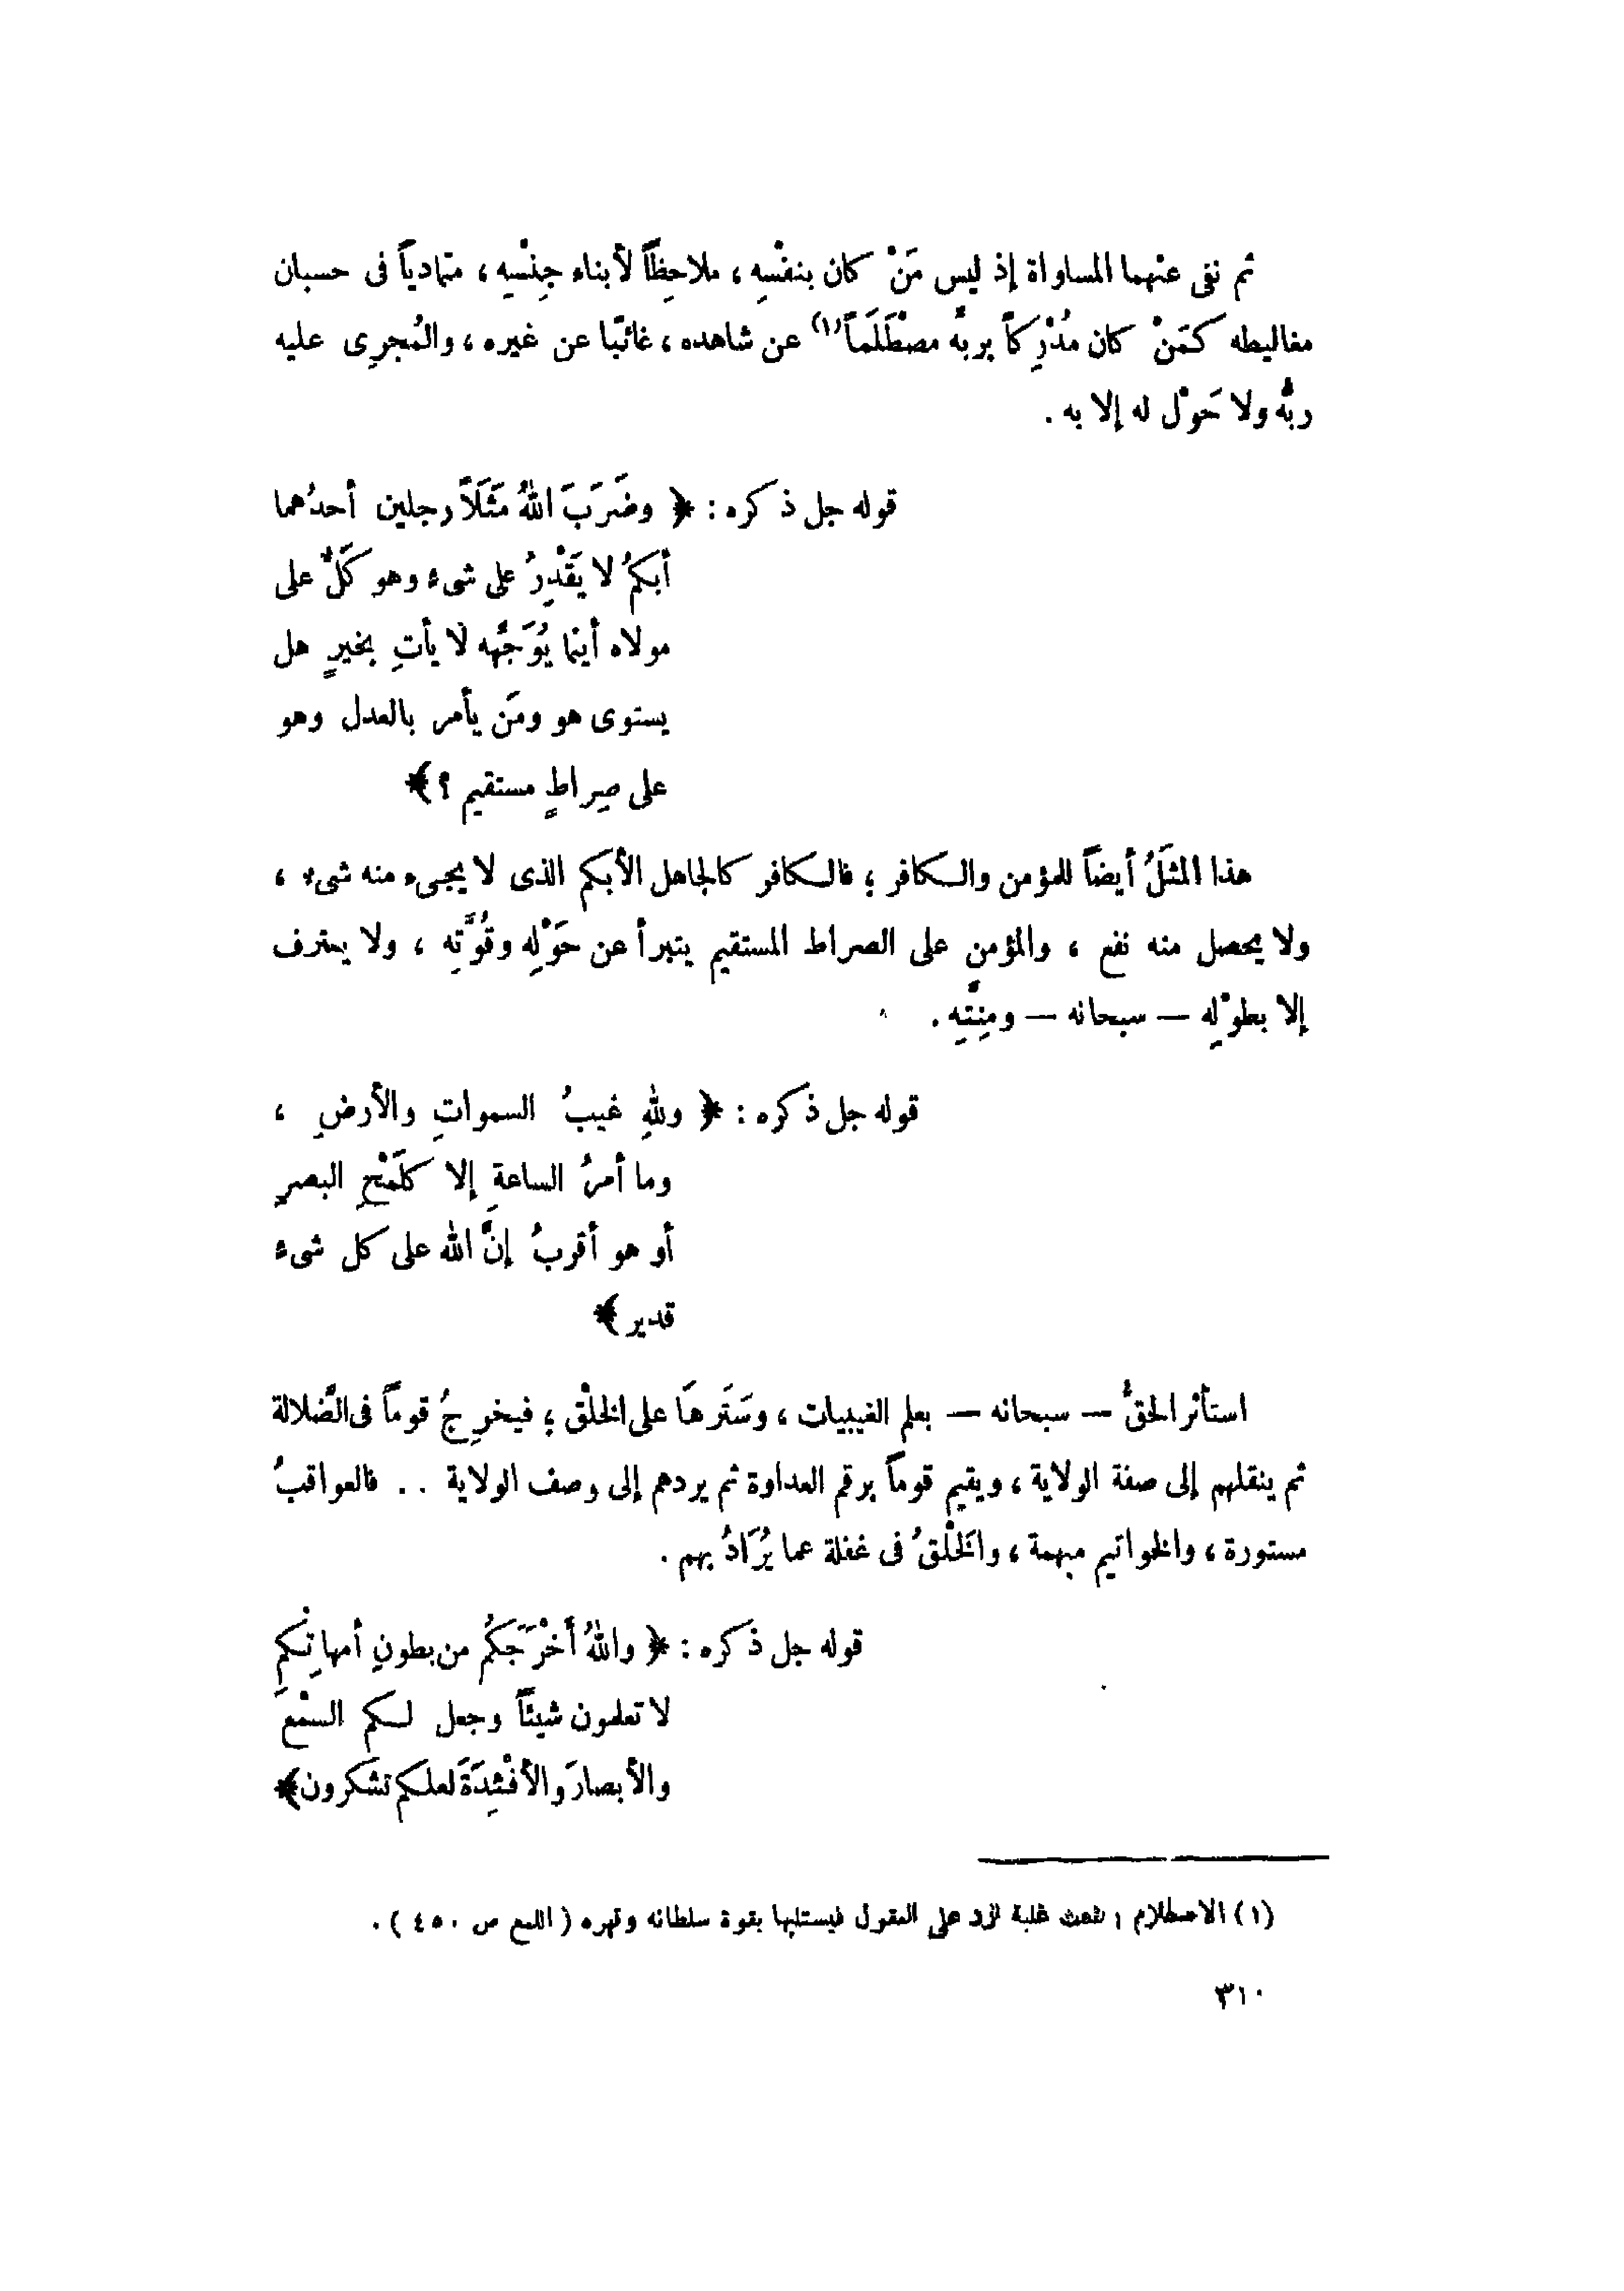 ثم نفى عنهما المساواة إذ ليس مَنْ كان بنفْسِه ، ملاحِظاً لأبناء جِنْسِه ، متمادياً فى حسبان
مغاليطه كَمَنْ كان مُدْرِكاً بربِّه مصْطَلَماً(١) عن شاهده ، غائبًا عن غيره ، والمُجرِى عليه
ربُّه ولا حَوْل له إلا به .
قوله جل ذكره : ﴿ وضَرَبَ اللهُ مَثَلَاً رجلين أحدُهما
أبكمُ لا يَقْدِرُ على شىء وهو كَلٌّ على
مولاه أينما يُوَجِّهه لا يأتِ بخيرٍ هل
يستوى هو ومَن يأمر بالعدل وهو
على صِراطٍ مستقيم ؟ ﴾
هذا المثَلُ أيضاً للمؤمن والكافر ؛ فالكافر كالجاهل الأبكم الذى لا يجىء منه شىء ،
ولا يحصل منه نفع ، والمؤمن على الصراط المستقيم يتبرأ عن حَوْلِه وقُوَّتِه ، ولا يعترف
إلا بطوْلِه — سبحانه — ومِنَّتِه .
قوله جل ذكره : ﴿ وللهِ غيبُ السمواتِ والأرضِ ،
وما أمرُ الساعةِ إلا كلَمْحِ البصرِ
أو هو أقربُ إنَّ الله على كل شىء
قدير ﴾
استأثر الحقُّ — سبحانه — بعلم الغيبيات ، وسَتَرها على الخلْق ؛ فيخرِجُ قوماً فى الضَّلالة
ثم ينقلهم إلى صفة الولاية ، ويقيم قوماً برقم العداوة ثم يردهم إلى وصف الولاية . . فالعواقبُ
مستورة ، والخواتيم مبهمة ، والخَلْقُ فى غفلة عما يُرَادُ بهم .
قوله جل ذكره : ﴿ واللهُ أَخْرَجَكُم من بطونِ أمهاتِكم
لا تعلمون شيئاً وجعل لكم السمْعَ
والأبصارَ والأفْئِدَةَ لعلكم تشكرون ﴾
(١) الاصطلام : نعت غلبة ترد على العقول فيستلبها بقوة سلطانه وقهره ( اللمع ص ٤٥٠ ) .
٣١٠